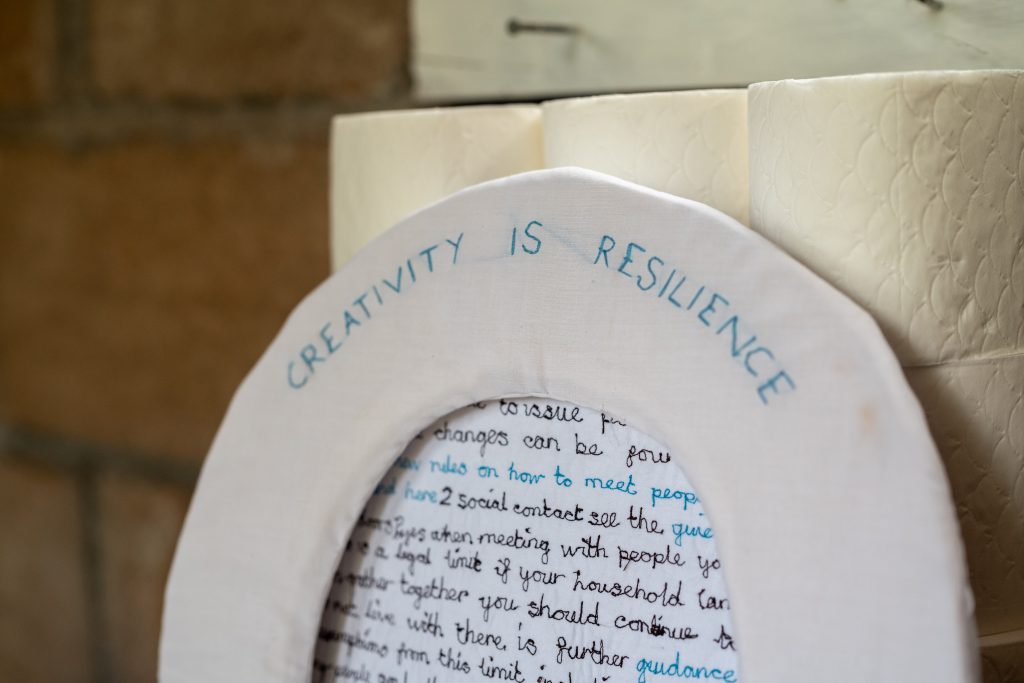 CREATIVITY IS RESILIENCE
to issue
changes can be
rules on how to meet
here 2 social contact see the
when meeting with people
a legal limit if your household can
together you should continue
live with there is further guidance
from this limit